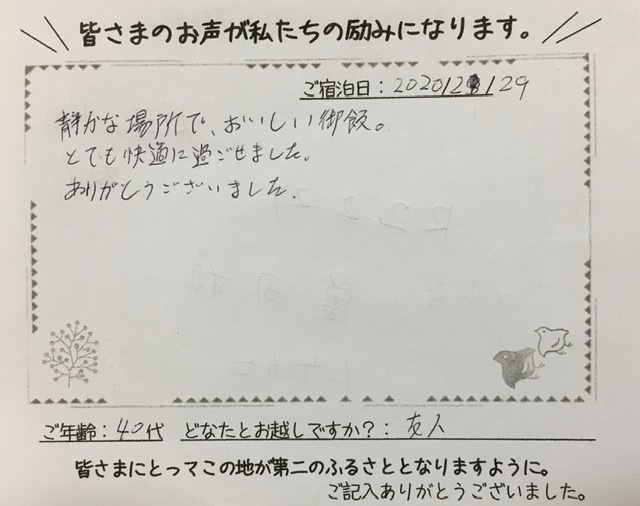 皆さまのお声が私たちの励みになります。
ご宿泊日：2020/12/29
静かな場所で、おいしい御飯。
とても快適に過ごせました。
ありがとうございました。
ご年齢：40代 どなたとお越しですか？：友人
皆さまにとってこの地が第二のふるさととなりますように。
ご記入ありがとうございました。